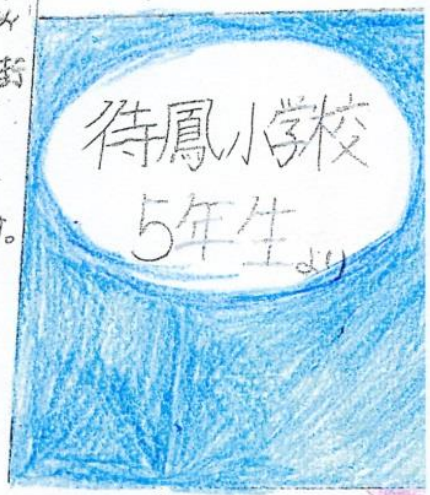 街
す。
待鳳小学校
5年生より